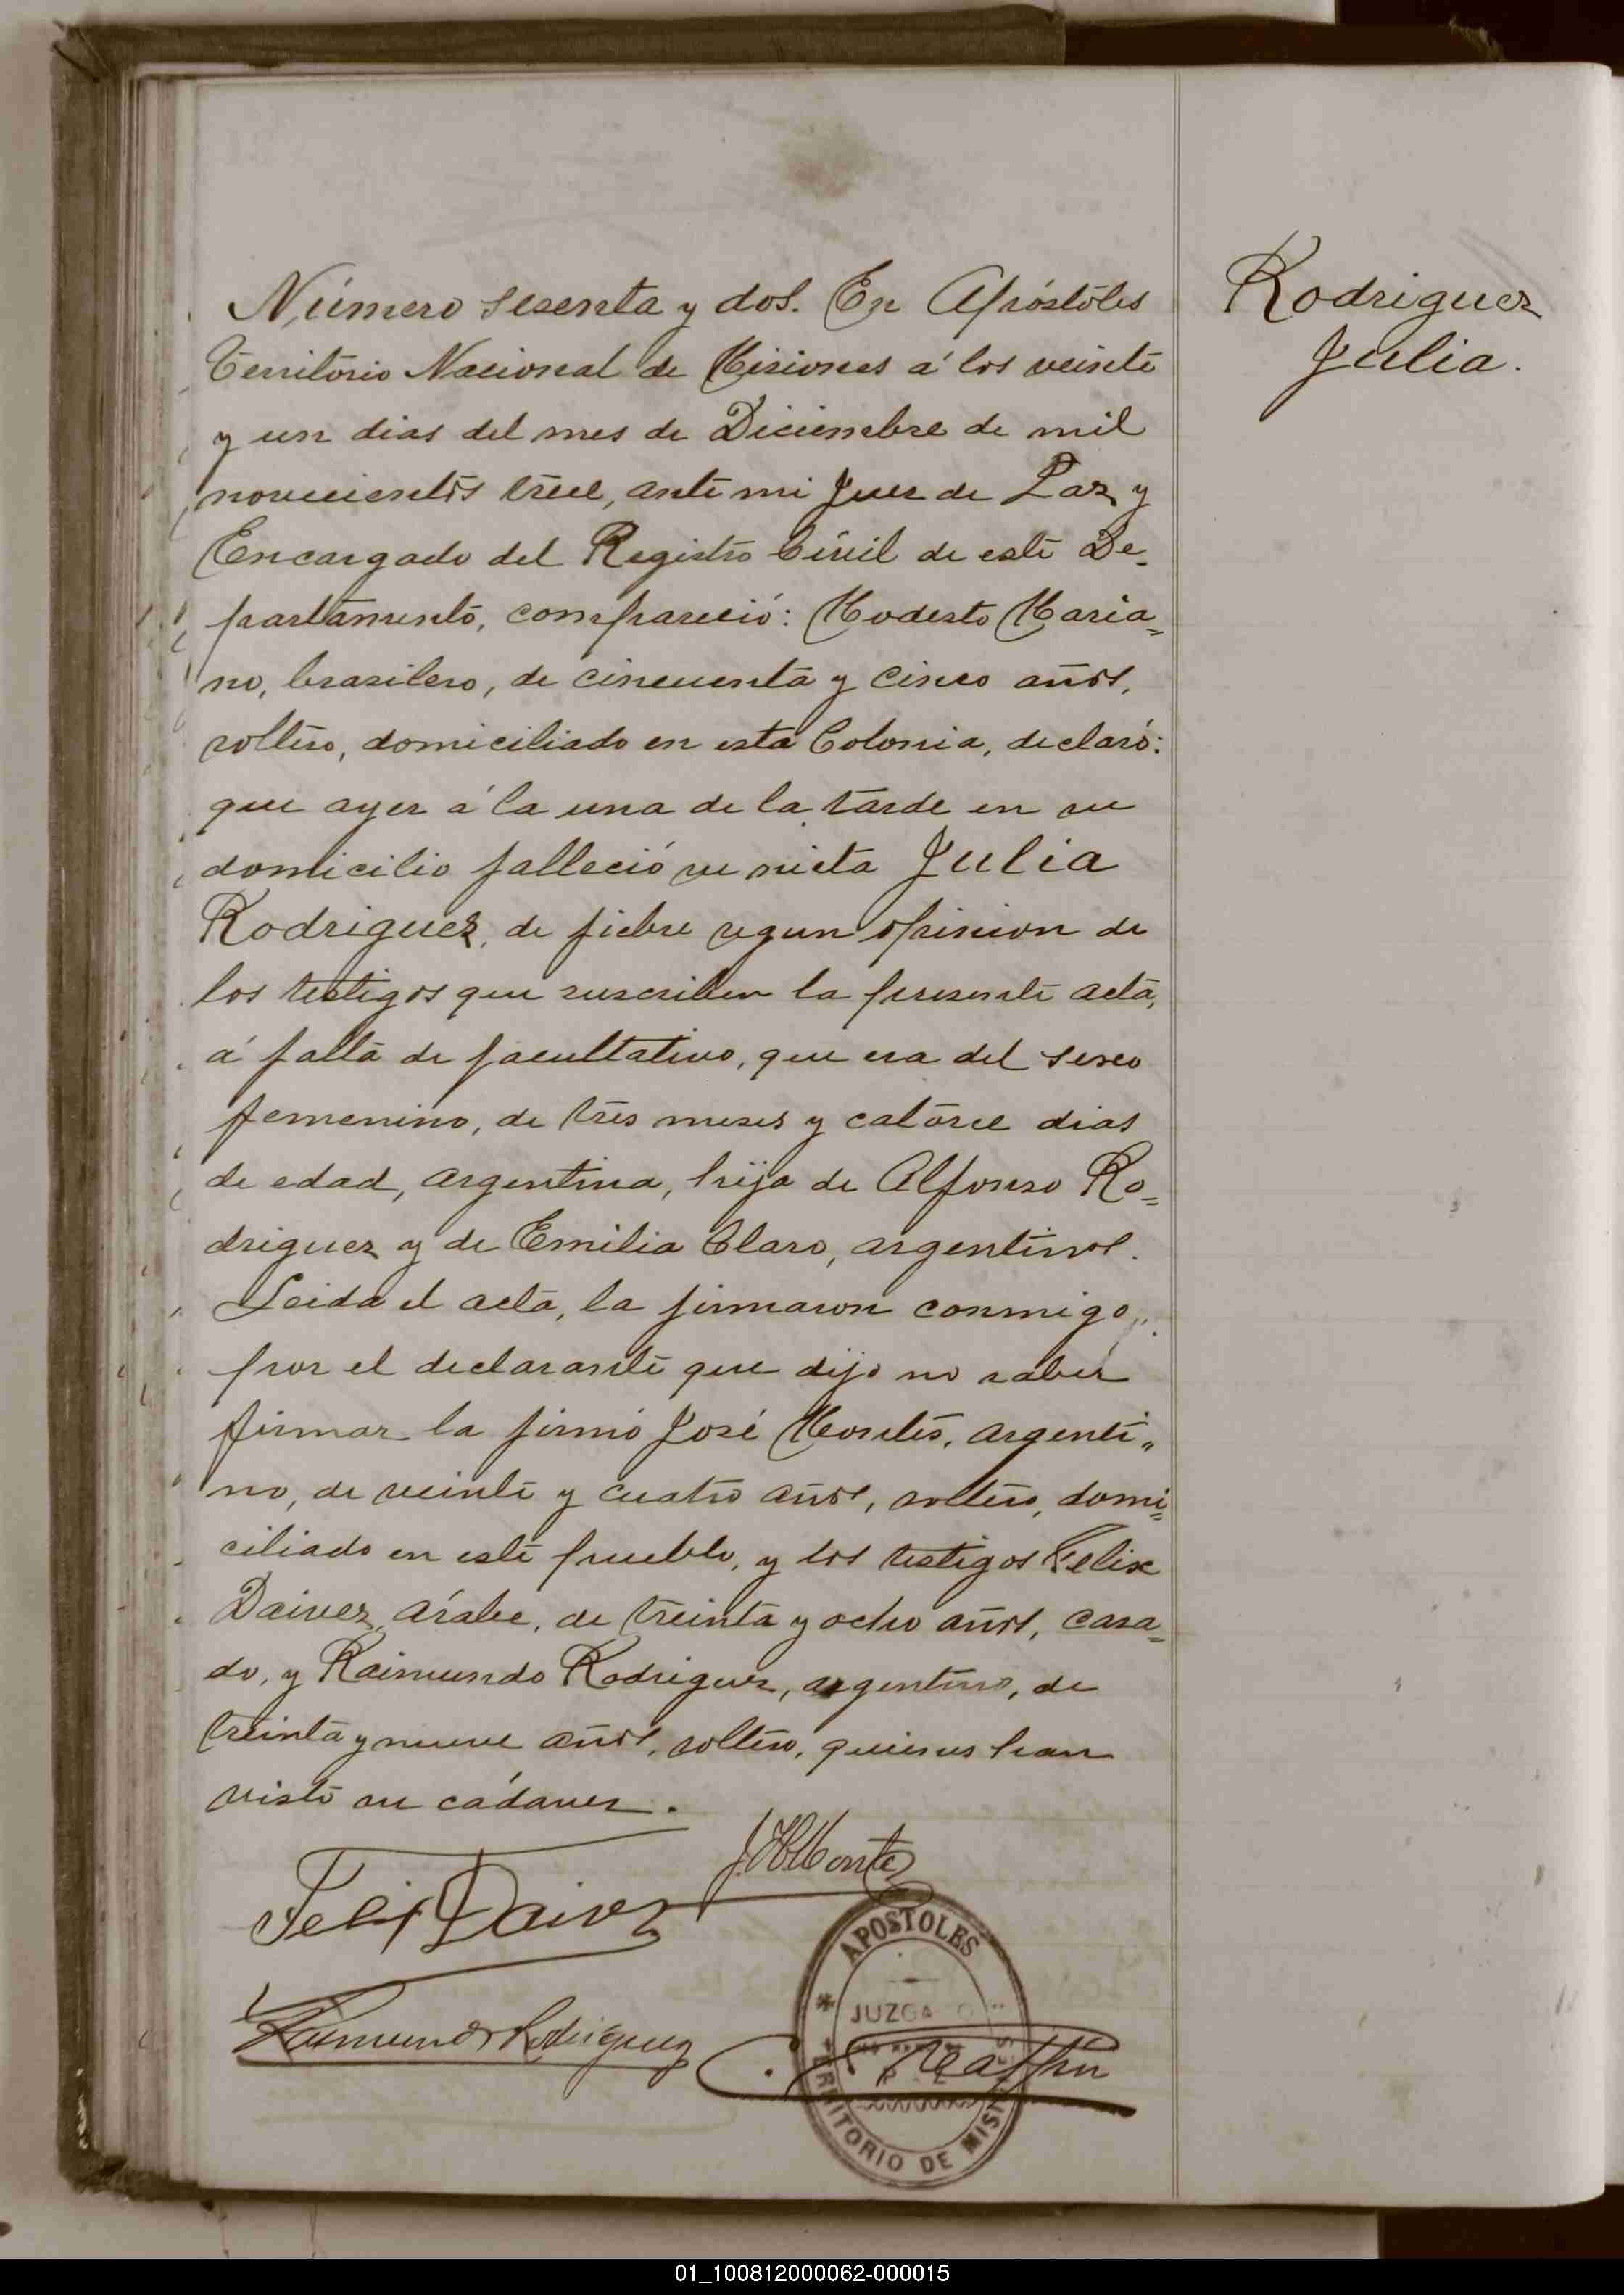 Número sesenta y dos. En Apóstoles
Territorio Nacional de Misiones á los veinte
y un dias del mes de Diciembre de mil
novecientos trece, ante mi Juez de Paz y
Encargado del Registro Civil de este De-
partamento, compareció: Modesto Maria=
no, brasilero, de cincuenta y cinco años,
soltero, domiciliado en esta Colonia, declaró:
que ayer á la una de la tarde en su
domicilio falleció su nieta Julia
Rodriguez, de fiebre segun opinion de
los testigos que suscriben la presente acta,
á falta de facultativo, que era del sexo
femenino, de tres meses y catorce dias
de edad, argentina, hija de Alfonso Ro=
driguez y de Emilia Claro, argentinos.
Leida el acta, la firmaron conmigo,
por el declarante que dijo no saber
firmar la firmó José Montes, argenti„
no, de veinte y cuatro años, soltero, domi=
ciliado en este pueblo, y los testigos Felix
Daivez, árabe, de treinta y ocho años, casa=
do, y Raimundo Rodriguez, argentino, de
treinta y nueve años, soltero, quienes han
visto su cádaver.
Rodriguez
Julia.
Felix Daivez
Raimundo Rodriguez
APOSTOLES
JUZGA O
TERRITORIO DE MISI
01_100812000062-000015